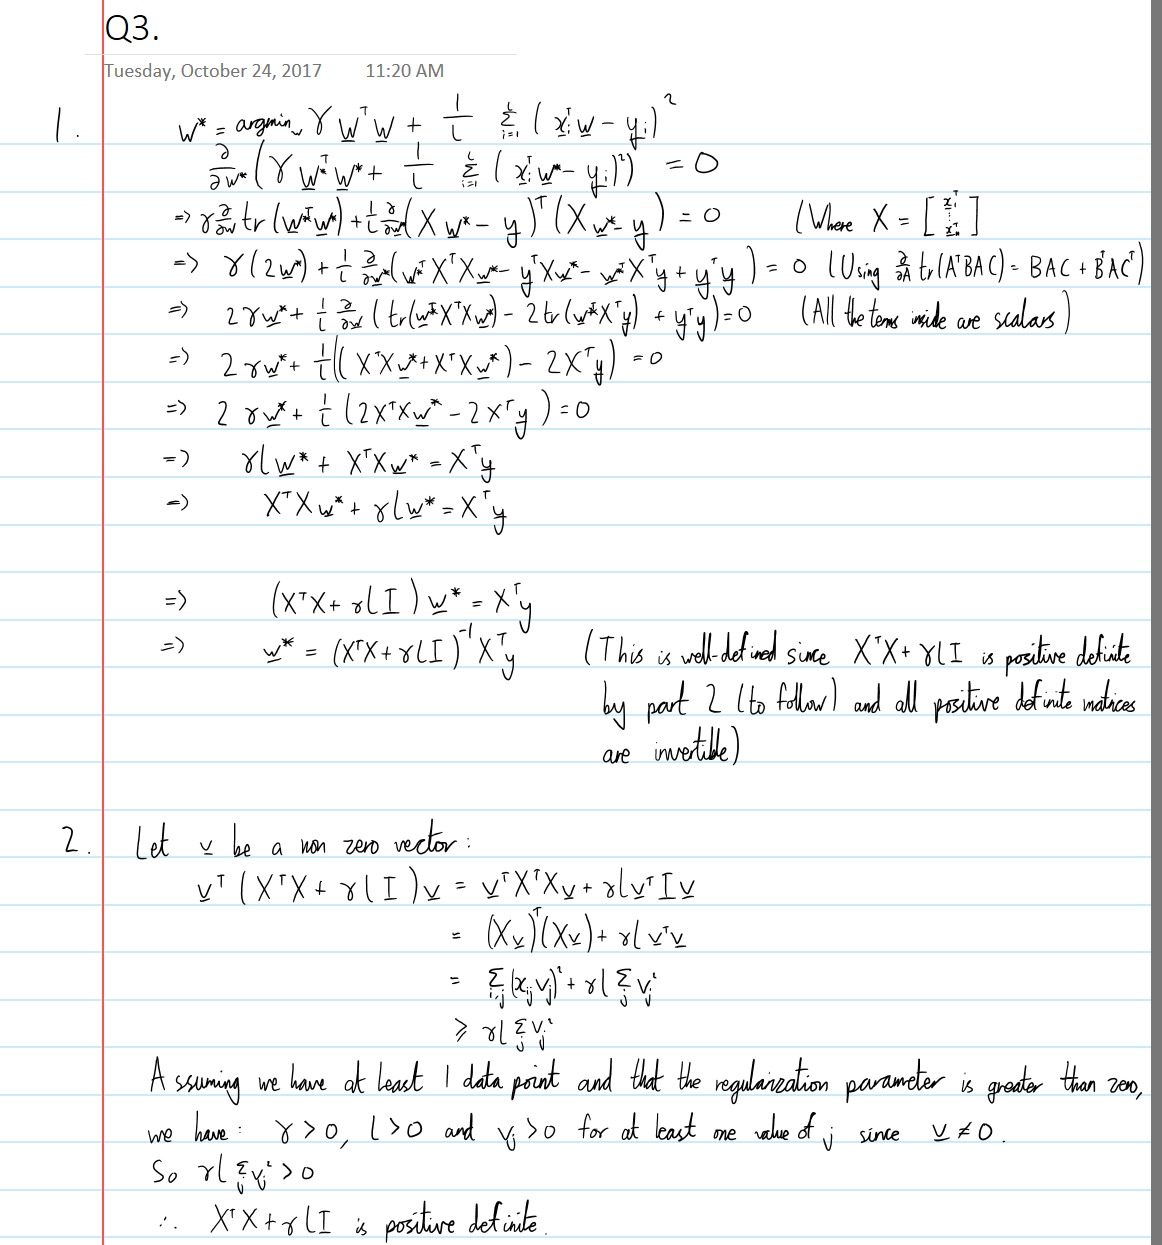 Q3.
Tuesday, October 24, 2017 11:20 AM
1. w* = argmin_w γ w^T w + 1/l Σ_{i=1}^{l} (x_i^T w - y_i)^2
∂/∂w* (γ w*^T w* + 1/l Σ_{i=1}^{l} (x_i^T w* - y_i)^2) = 0
=> γ ∂/∂w* tr(w*^T w*) + 1/l ∂/∂w* (X w* - y)^T (X w* - y) = 0 (Where X = [x_1^T ⋮ x_n^T]
=> γ(2w*) + 1/l ∂/∂w* (w*^T X^T X w* - y^T X w* - w*^T X^T y + y^T y) = 0 (Using ∂/∂A tr(A^T B A C) = BAC + B^T A C^T)
=> 2γw* + 1/l ∂/∂w* (tr(w*^T X^T X w*) - 2tr(w*^T X^T y) + y^T y) = 0 (All the terms inside are scalars)
=> 2γw* + 1/l ((X^T X w* + X^T X w*) - 2X^T y) = 0
=> 2γw* + 1/l (2X^T X w* - 2X^T y) = 0
=> γl w* + X^T X w* = X^T y
=> X^T X w* + γl w* = X^T y
=> (X^T X + γl I) w* = X^T y
=> w* = (X^T X + γl I)^{-1} X^T y (This is well-defined since X^T X + γl I is positive definite
by part 2 (to follow) and all positive definite matrices
are invertible)
2. Let v be a non zero vector:
v^T (X^T X + γl I) v = v^T X^T X v + γl v^T I v
= (Xv)^T (Xv) + γl v^T v
= Σ_{i,j} (x_{ij} v_j)^2 + γl Σ_j v_j^2
≥ γl Σ_j v_j^2
Assuming we have at least 1 data point and that the regularization parameter is greater than zero,
we have: γ > 0, l > 0 and v_j > 0 for at least one value of j since v ≠ 0.
So γl Σ_j v_j^2 > 0
∴ X^T X + γl I is positive definite.